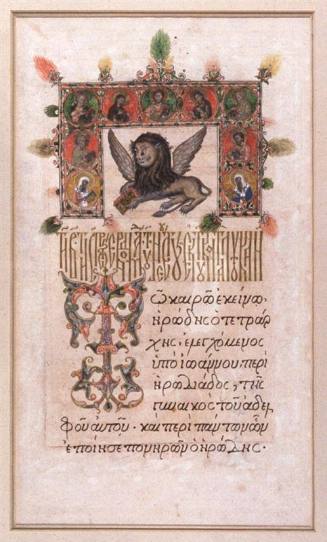 Τῶ καιρῶ ἐκείνω·
ἡρώδης ὁ τετράρ
χης, ἐλεγχόμενος
ὑπὸ ἰωάννου περὶ
ἡρωδιάδος, τῆς
γυναικὸς τοῦ ἀδελ
φοῦ αὐτοῦ· καὶ περὶ πάντων ὧν
ἐποίησε πονηρῶν ὁ ἡρώδης·